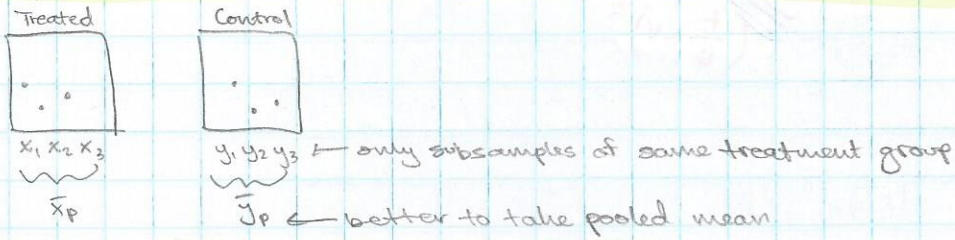 Treated Control
x₁ x₂ x₃ y₁ y₂ y₃ ← only subsamples of same treatment group
x̄p ȳp ← better to take pooled mean